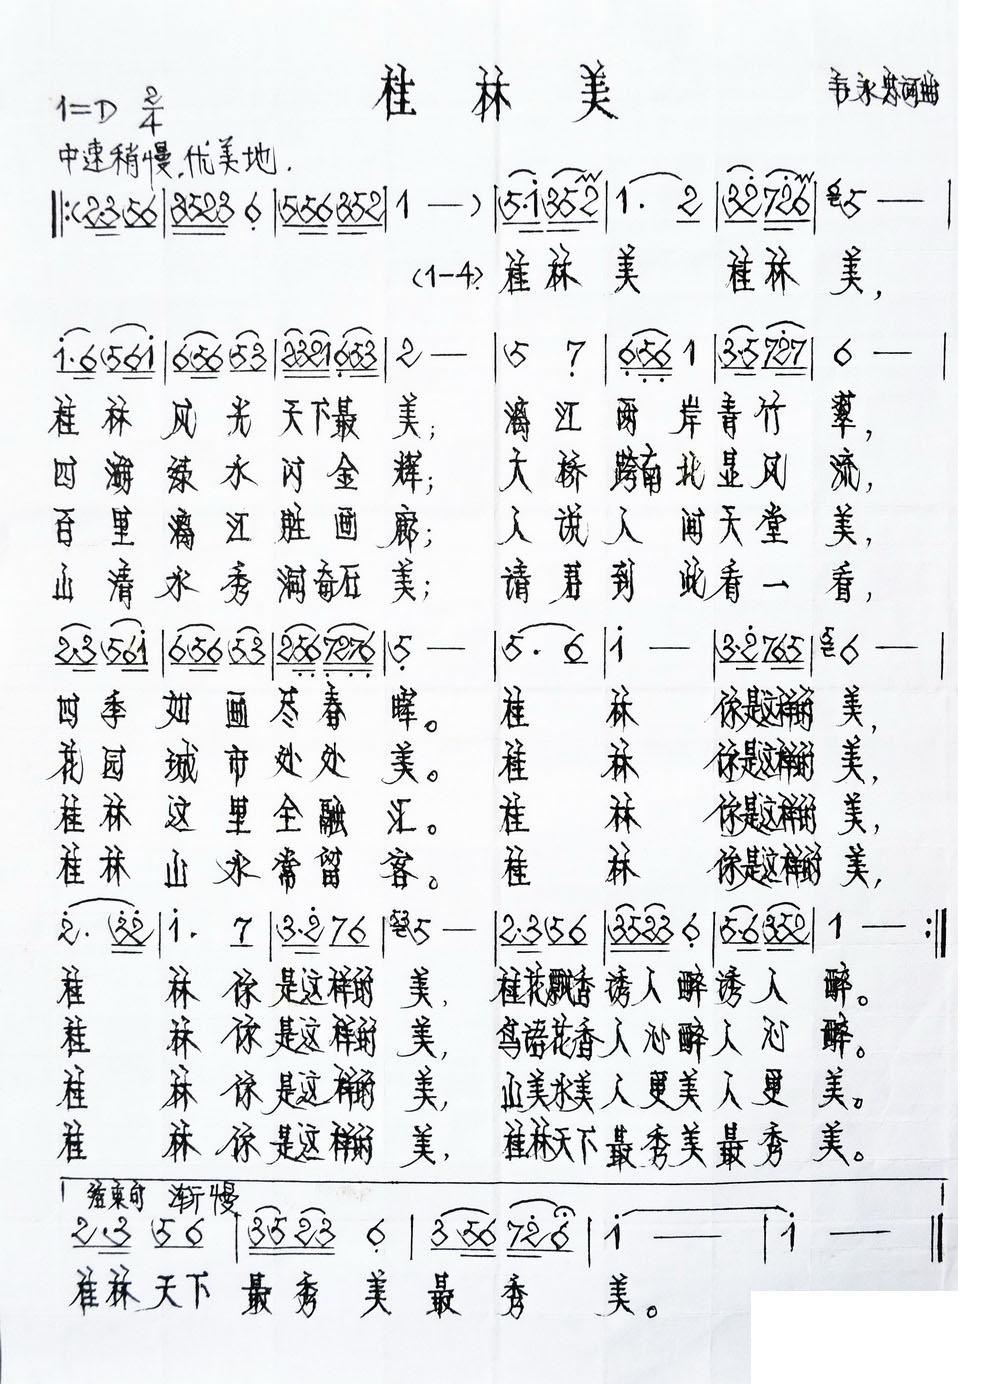 桂林美
1=D 2/4
韦永忠词曲
中速稍慢.优美地.
‖:(2·3 56|3523 6|556 352|1 —)|5·1 352|1· 2|32 726|5 —|
(1-4)桂林美 桂林美,
1·6 561|656 53|2321 653|2 —|5 7|656 1|3·5 727|6 —|
桂林风光天下最美;漓江两岸青竹翠,
四湖绿水闪金辉;大桥跨南北显风流,
百里漓江胜画廊;人说人间天堂美,
山清水秀洞奇石美;请君到此看一看,
2·3 561|656 53|256 7276|5 —|5· 6|1 —|3·2 765|6 —|
四季如画尽春晖。桂林你是这样的美,
花园城市处处美。桂林你是这样的美,
桂林这里全融汇。桂林你是这样的美,
桂林山水常留客。桂林你是这样的美,
2· 32|1· 7|3·2 76|5 —|2·3 56|3523 6|5·6 352|1 —:‖
桂林你是这样的美,桂花飘香诱人醉诱人醉。
桂林你是这样的美,鸟语花香人心醉人心醉。
桂林你是这样的美,山美水美人更美人更美。
桂林你是这样的美,桂林天下最秀美最秀美。
结束句 渐慢
2·3 56|35 23 6|3 56 726|1 —|1 —‖
桂林天下最秀美最秀美。